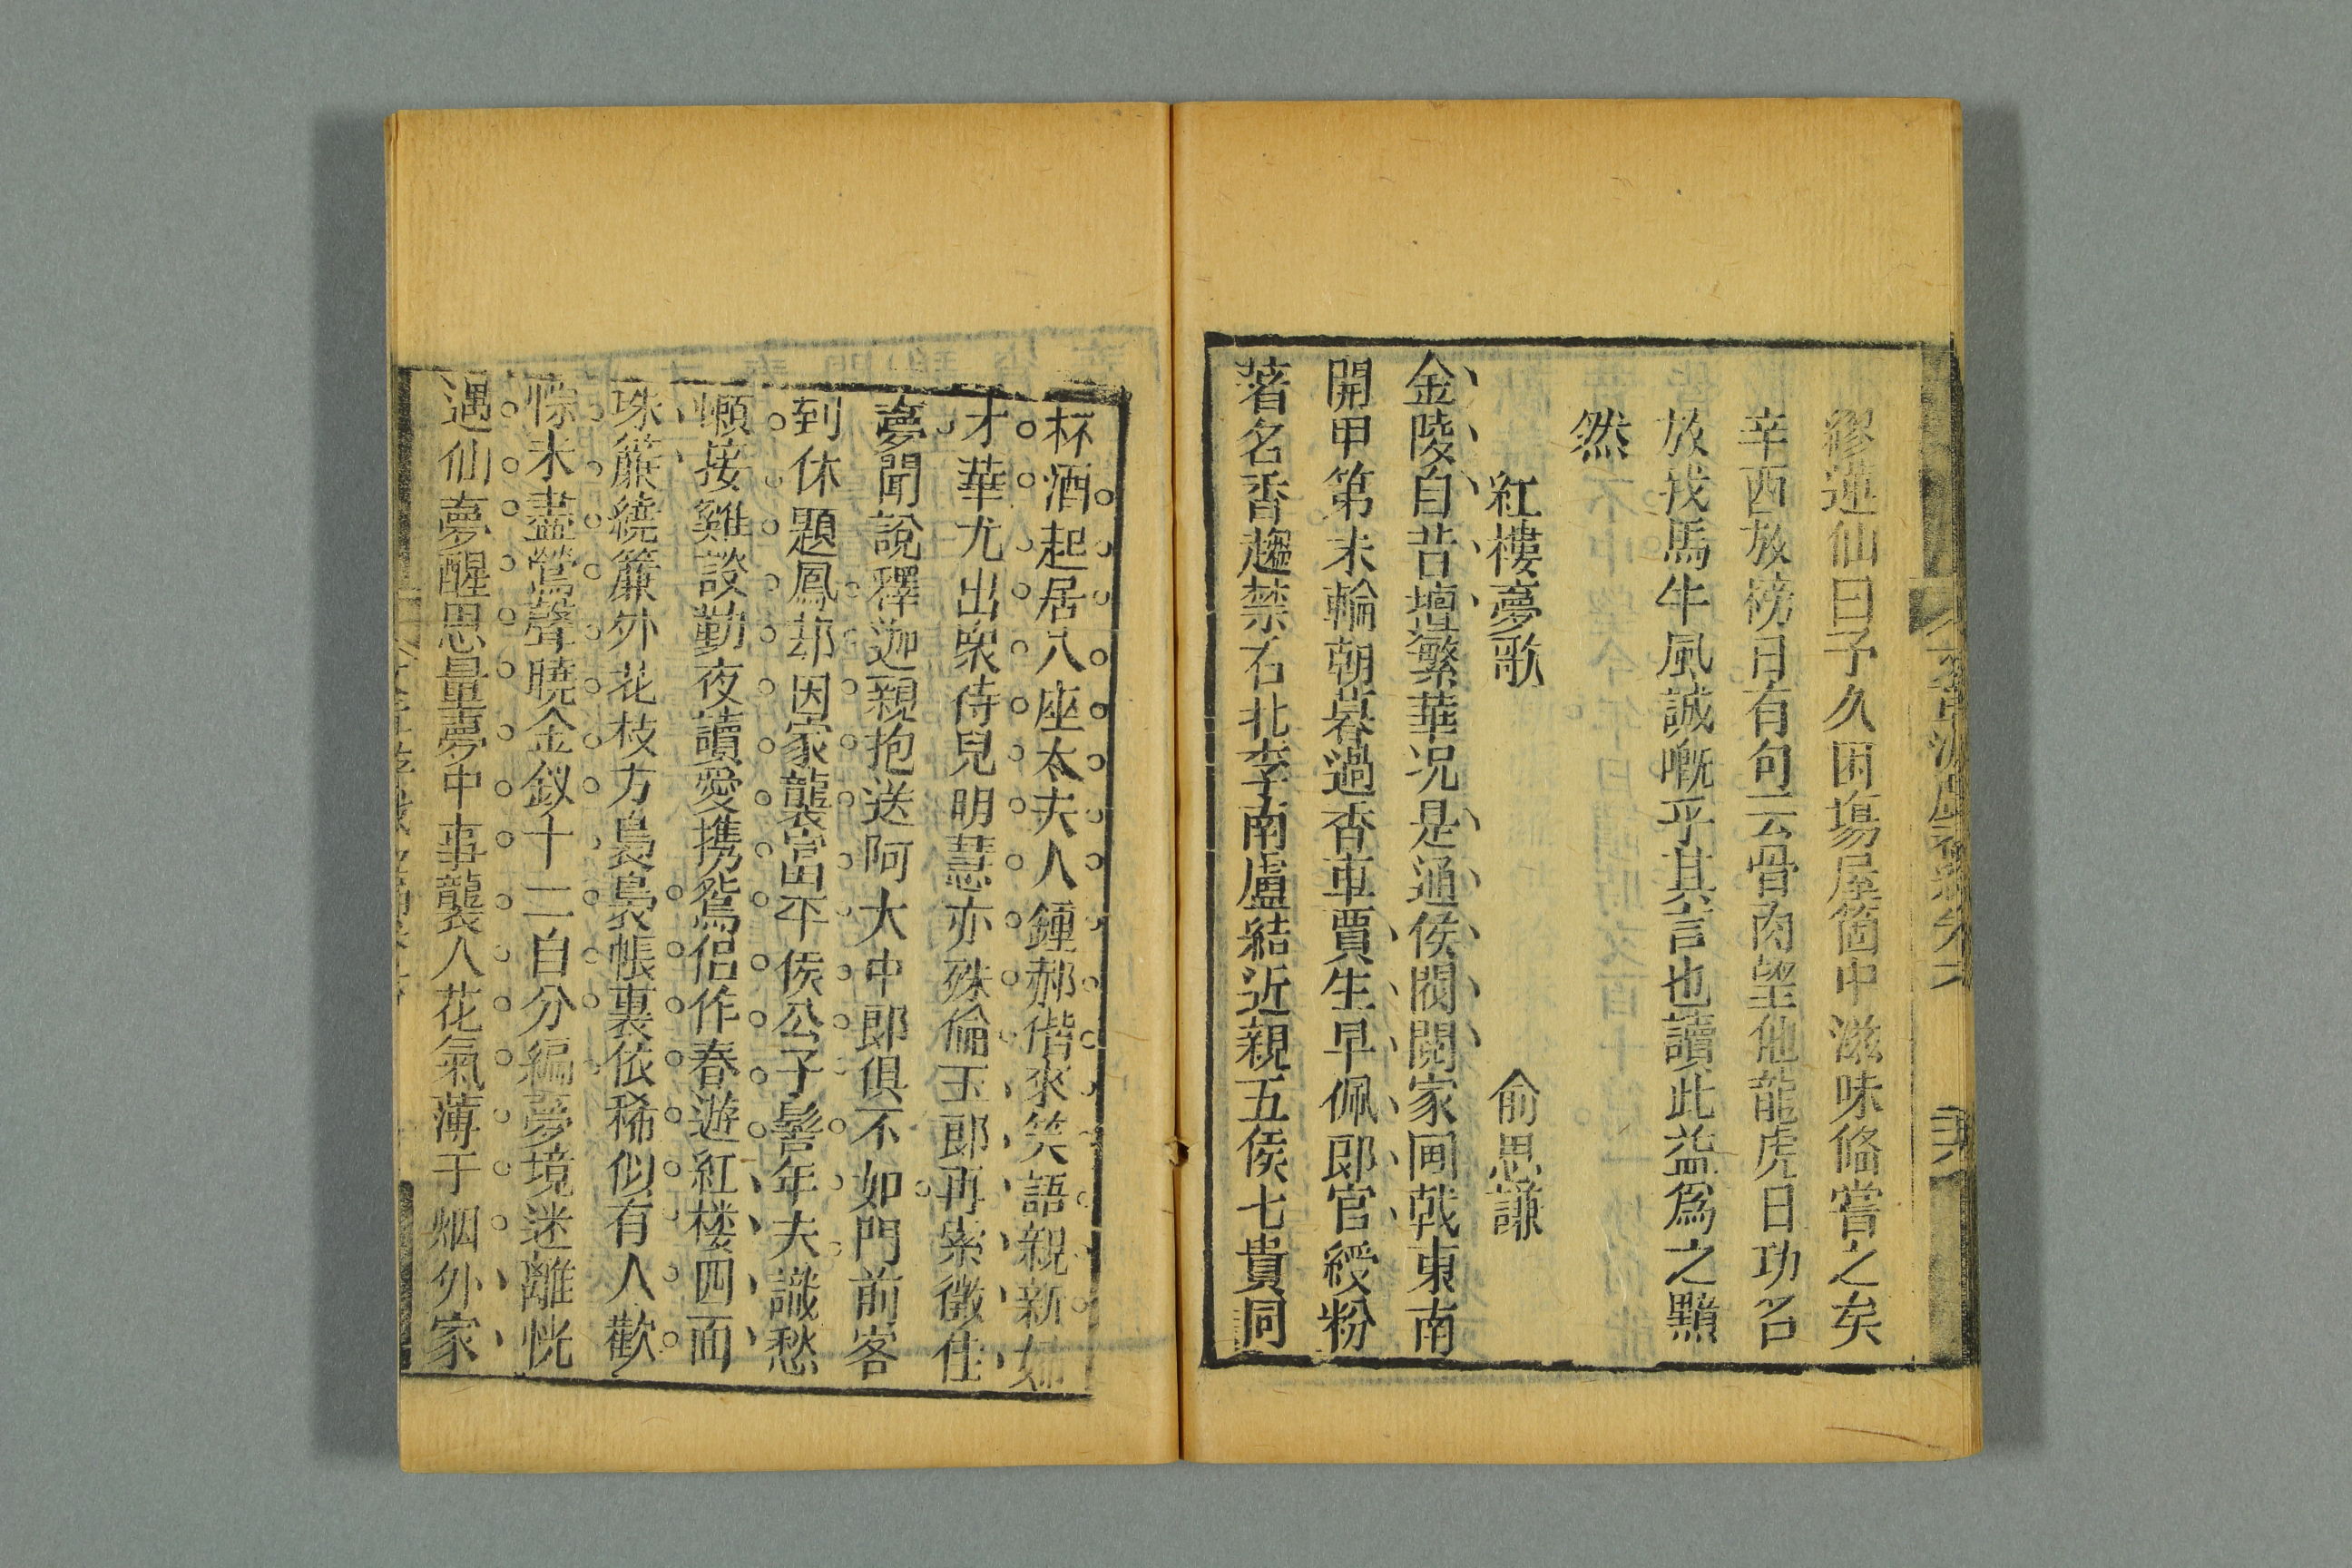 繆蓮仙曰予久困塲屋箇中滋味俻嘗之矣
辛酉放榜日有句云骨肉望他龍虎日功名
放我馬牛風誠嘅乎其言也讀此益爲之黯
然
紅樓夢歌 俞思謙
金陵自昔擅繁華況是通侯閥閱家画戟東南
開甲第朱輪朝暮過香車賈生早佩郎官綬粉
著名香趨禁右北李南盧結近親五侯七貴同
杯酒起居八座太夫人鍾郝偕來笑語親新婦
才華尤出衆侍兒明慧亦殊倫玉郎再索徵佳
夢聞說釋迦親抱送阿大中郎俱不如門前客
到休題鳳却因家襲富平侯公子髫年夫識愁
嬾接雞談勤夜讀愛携鴛侶作春遊紅楼四面
珠簾繞簾外花枝方裊裊帳裏依稀似有人歡
悰未盡鶯聲曉金釵十二自分編夢境迷離恍
遇仙夢醒思量夢中事襲人花氣薄于烟外家